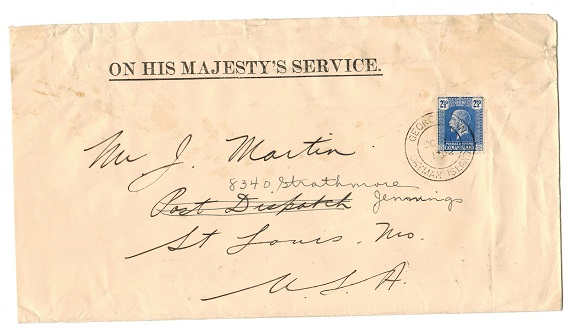 ON HIS MAJESTY'S SERVICE.
2½ 2½
CAYMAN ISLANDS
GEORGE
CAYMAN ISLAN
Mr J. Martin
8340 Strathmore
Post Dispatch Jennings
St Louis. Mo.
U.S.A.